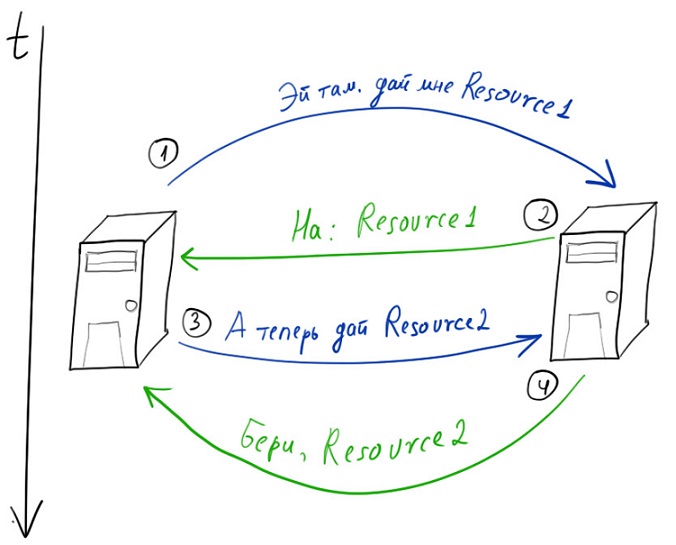 t
Эй там, дай мне Resource1
1
На: Resource1
2
3
А теперь дай Resource2
4
Бери, Resource2